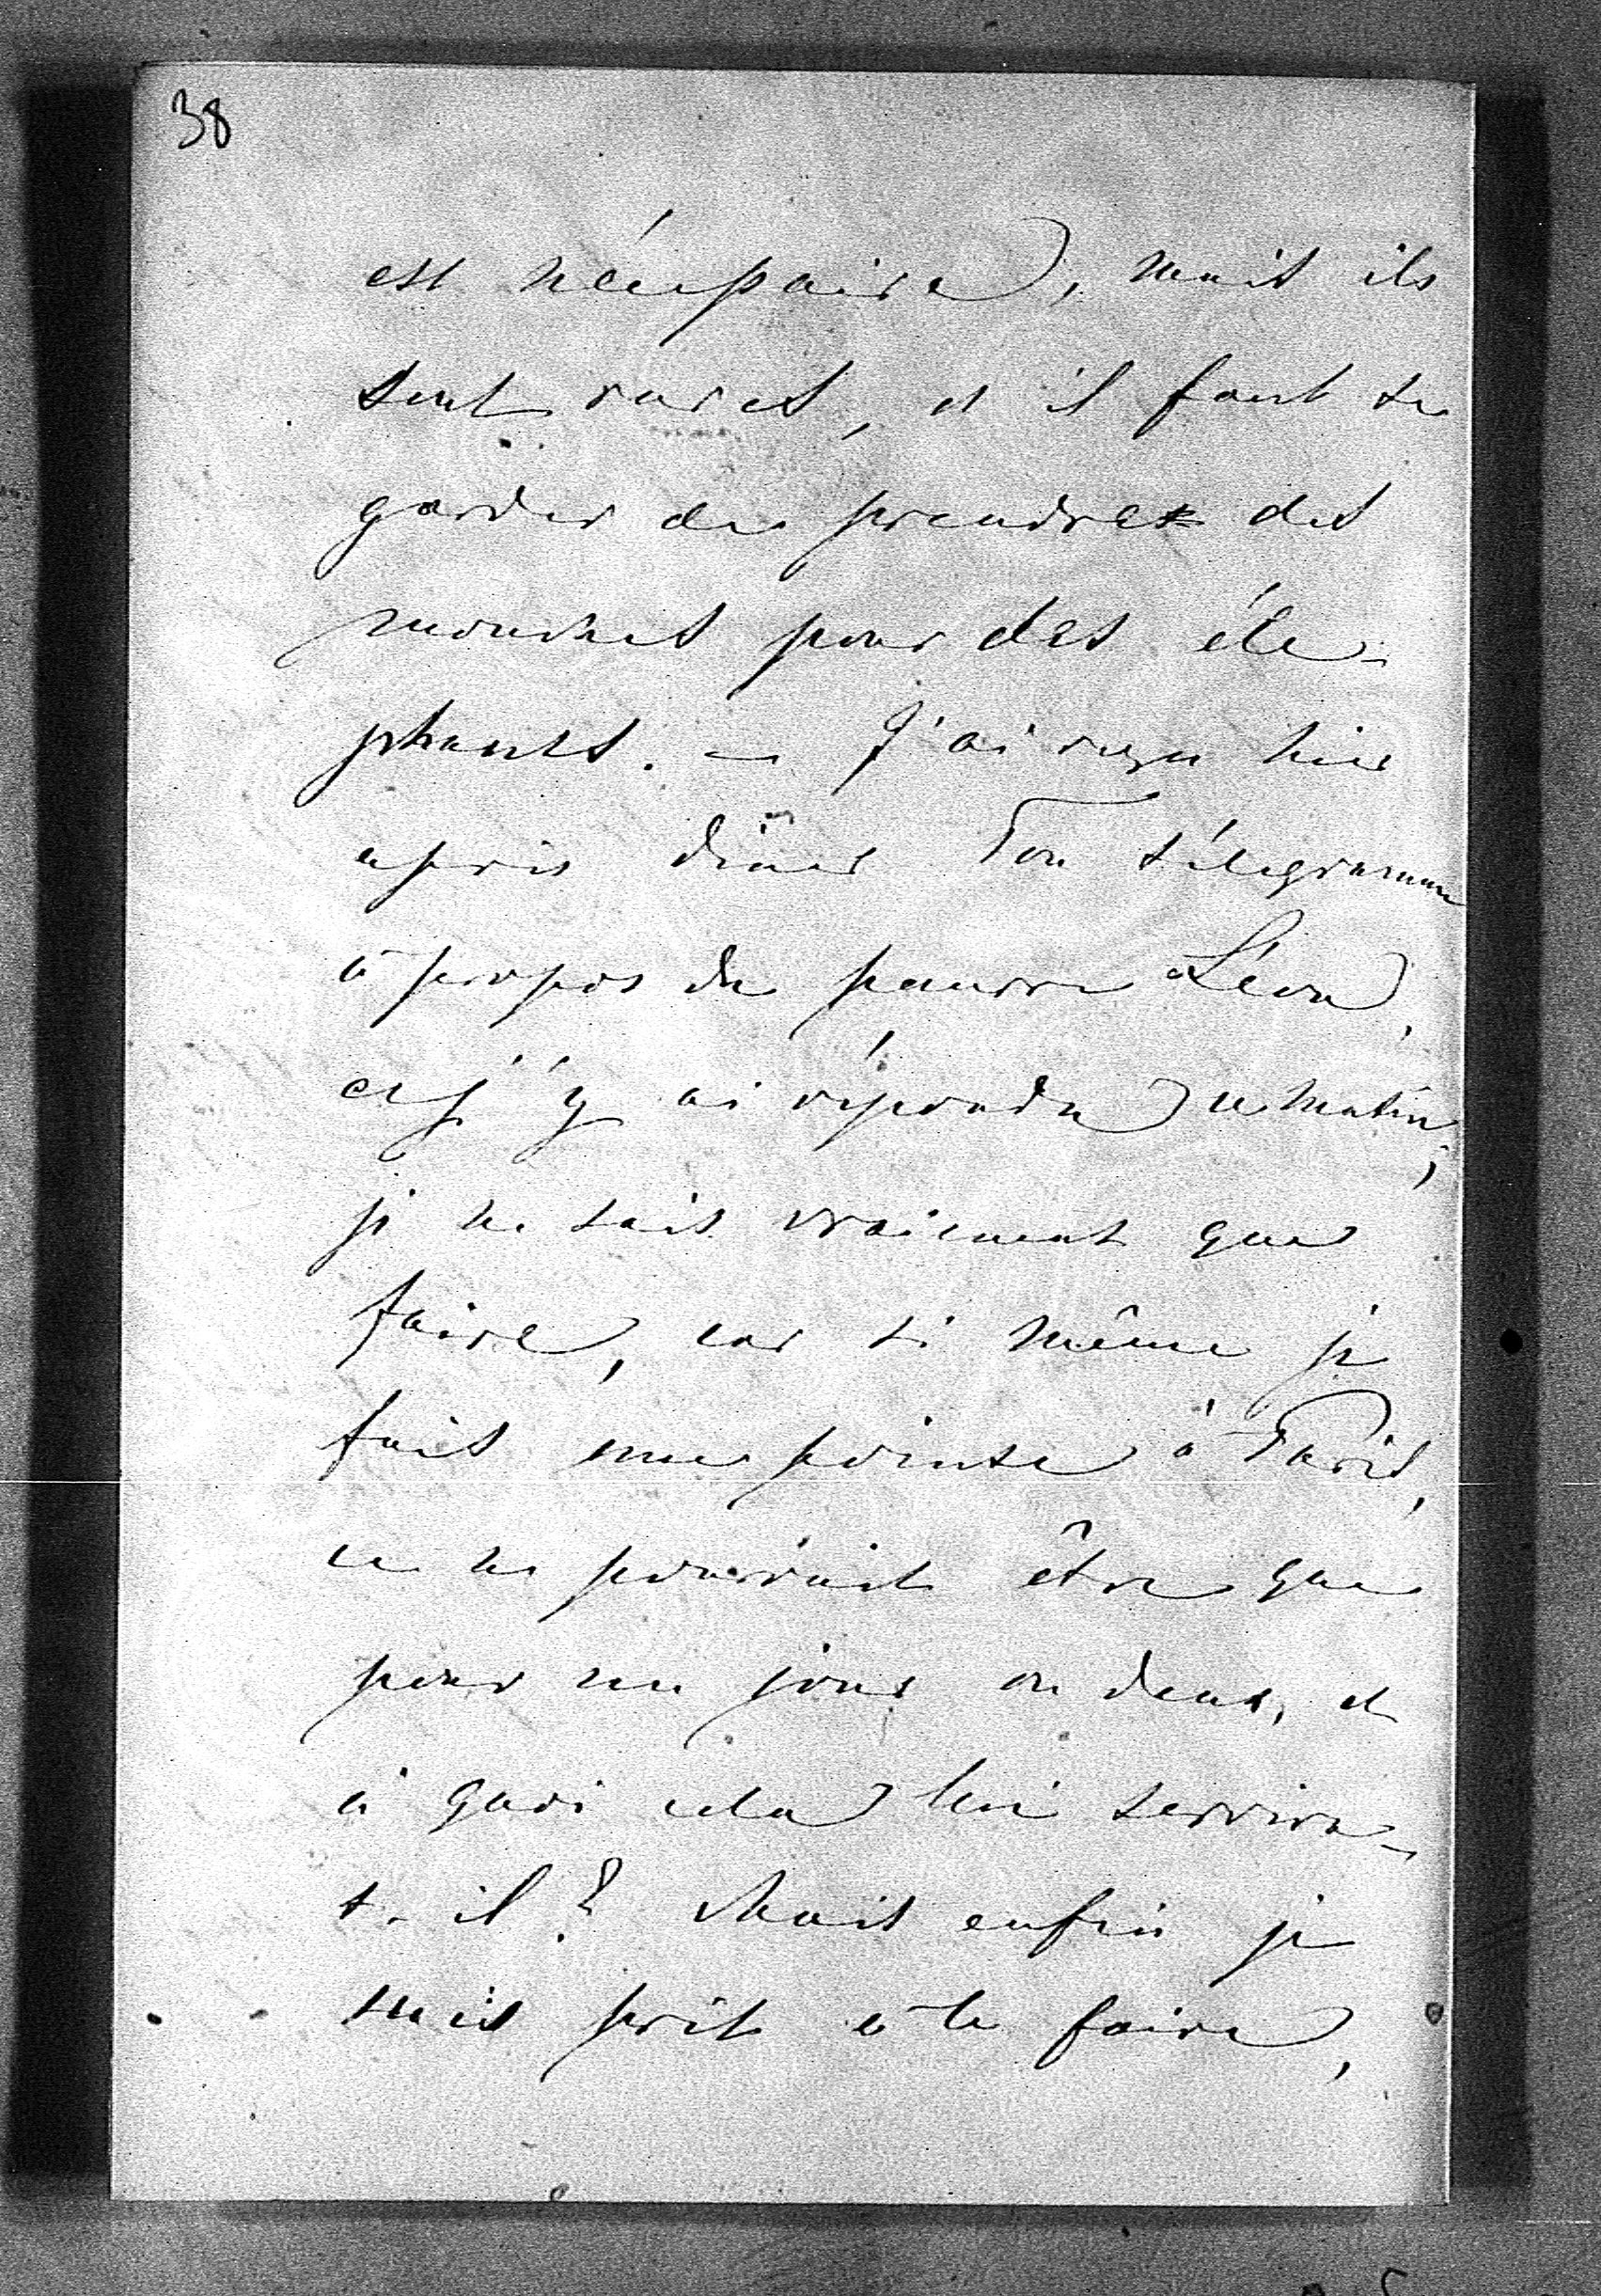 38
est nécessaire, mais ils
sont rares, et il faut se
garder de prendre des
mouches pour des élé-
phants. — J'ai reçu hier
après dîner Ton télégramme
à propos du pauvre Léon,
et j'y ai répondu ce matin;
je ne sais vraiment que
faire, car si même je
fais une pointe à Paris,
ce ne pourrait être que
pour un jour ou deux, et
à quoi cela lui servira-
t-il? Mais enfin je
suis prêt à le faire,